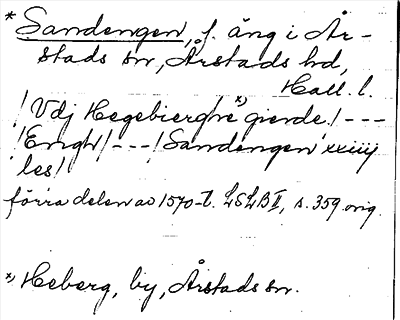 * Sandengen, f. äng i År-
stads sn, Årstads hd,
Hall. l.
/Vdj Hegebierghe x) gierde/ ---
/Engh/ --- /Sandengen xxiiij
les/
förra delen av 1570-t. LSLB II, s. 359 orig.
x) Heberg, by, Årstads sn.